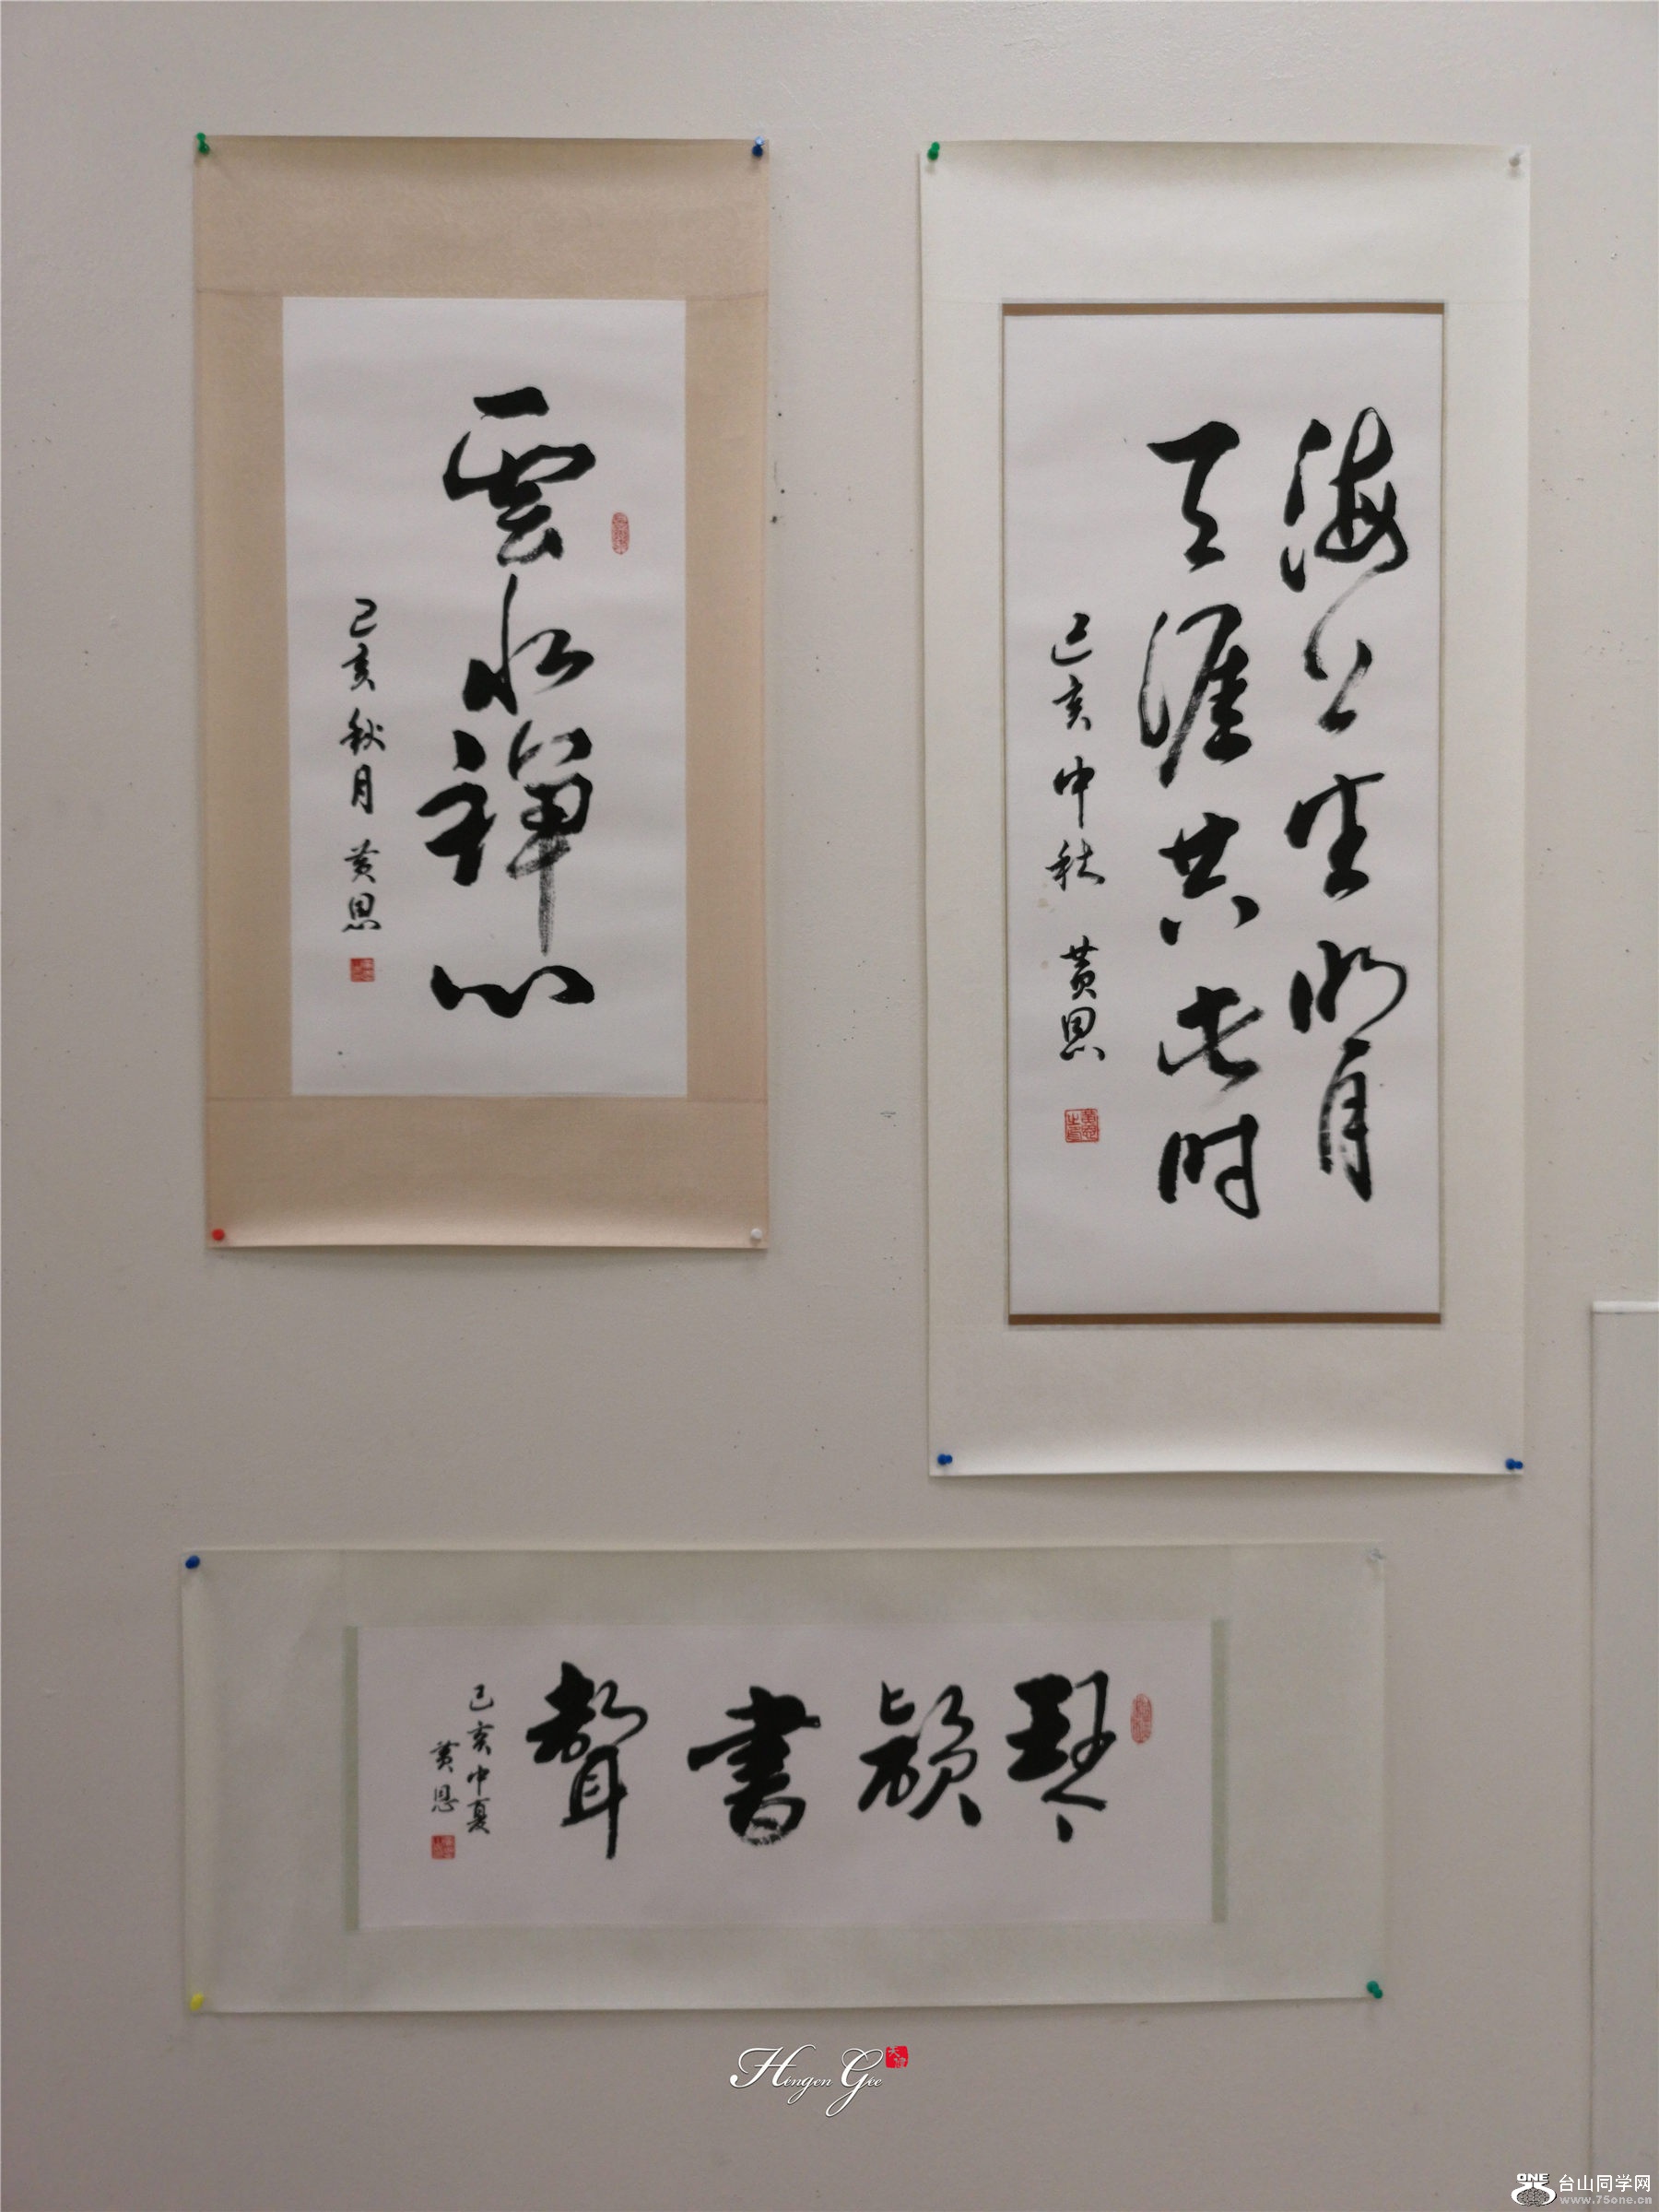 雲水禪心
己亥秋月 黄恩
海上生明月
天涯共此时
己亥中秋 黄恩
琴韻書聲
己亥中夏
黄恩
Hengen Gee
ONE 台山同学网
www.75one.cn